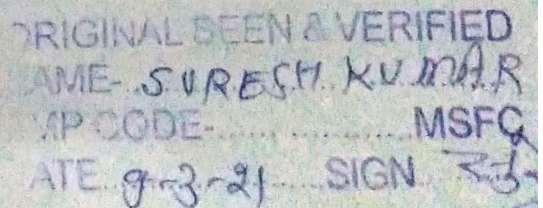 ORIGINAL SEEN & VERIFIED
NAME- SURESH KUMAR
EMP CODE-.................MSFC
DATE. 9-3-21 ......SIGN